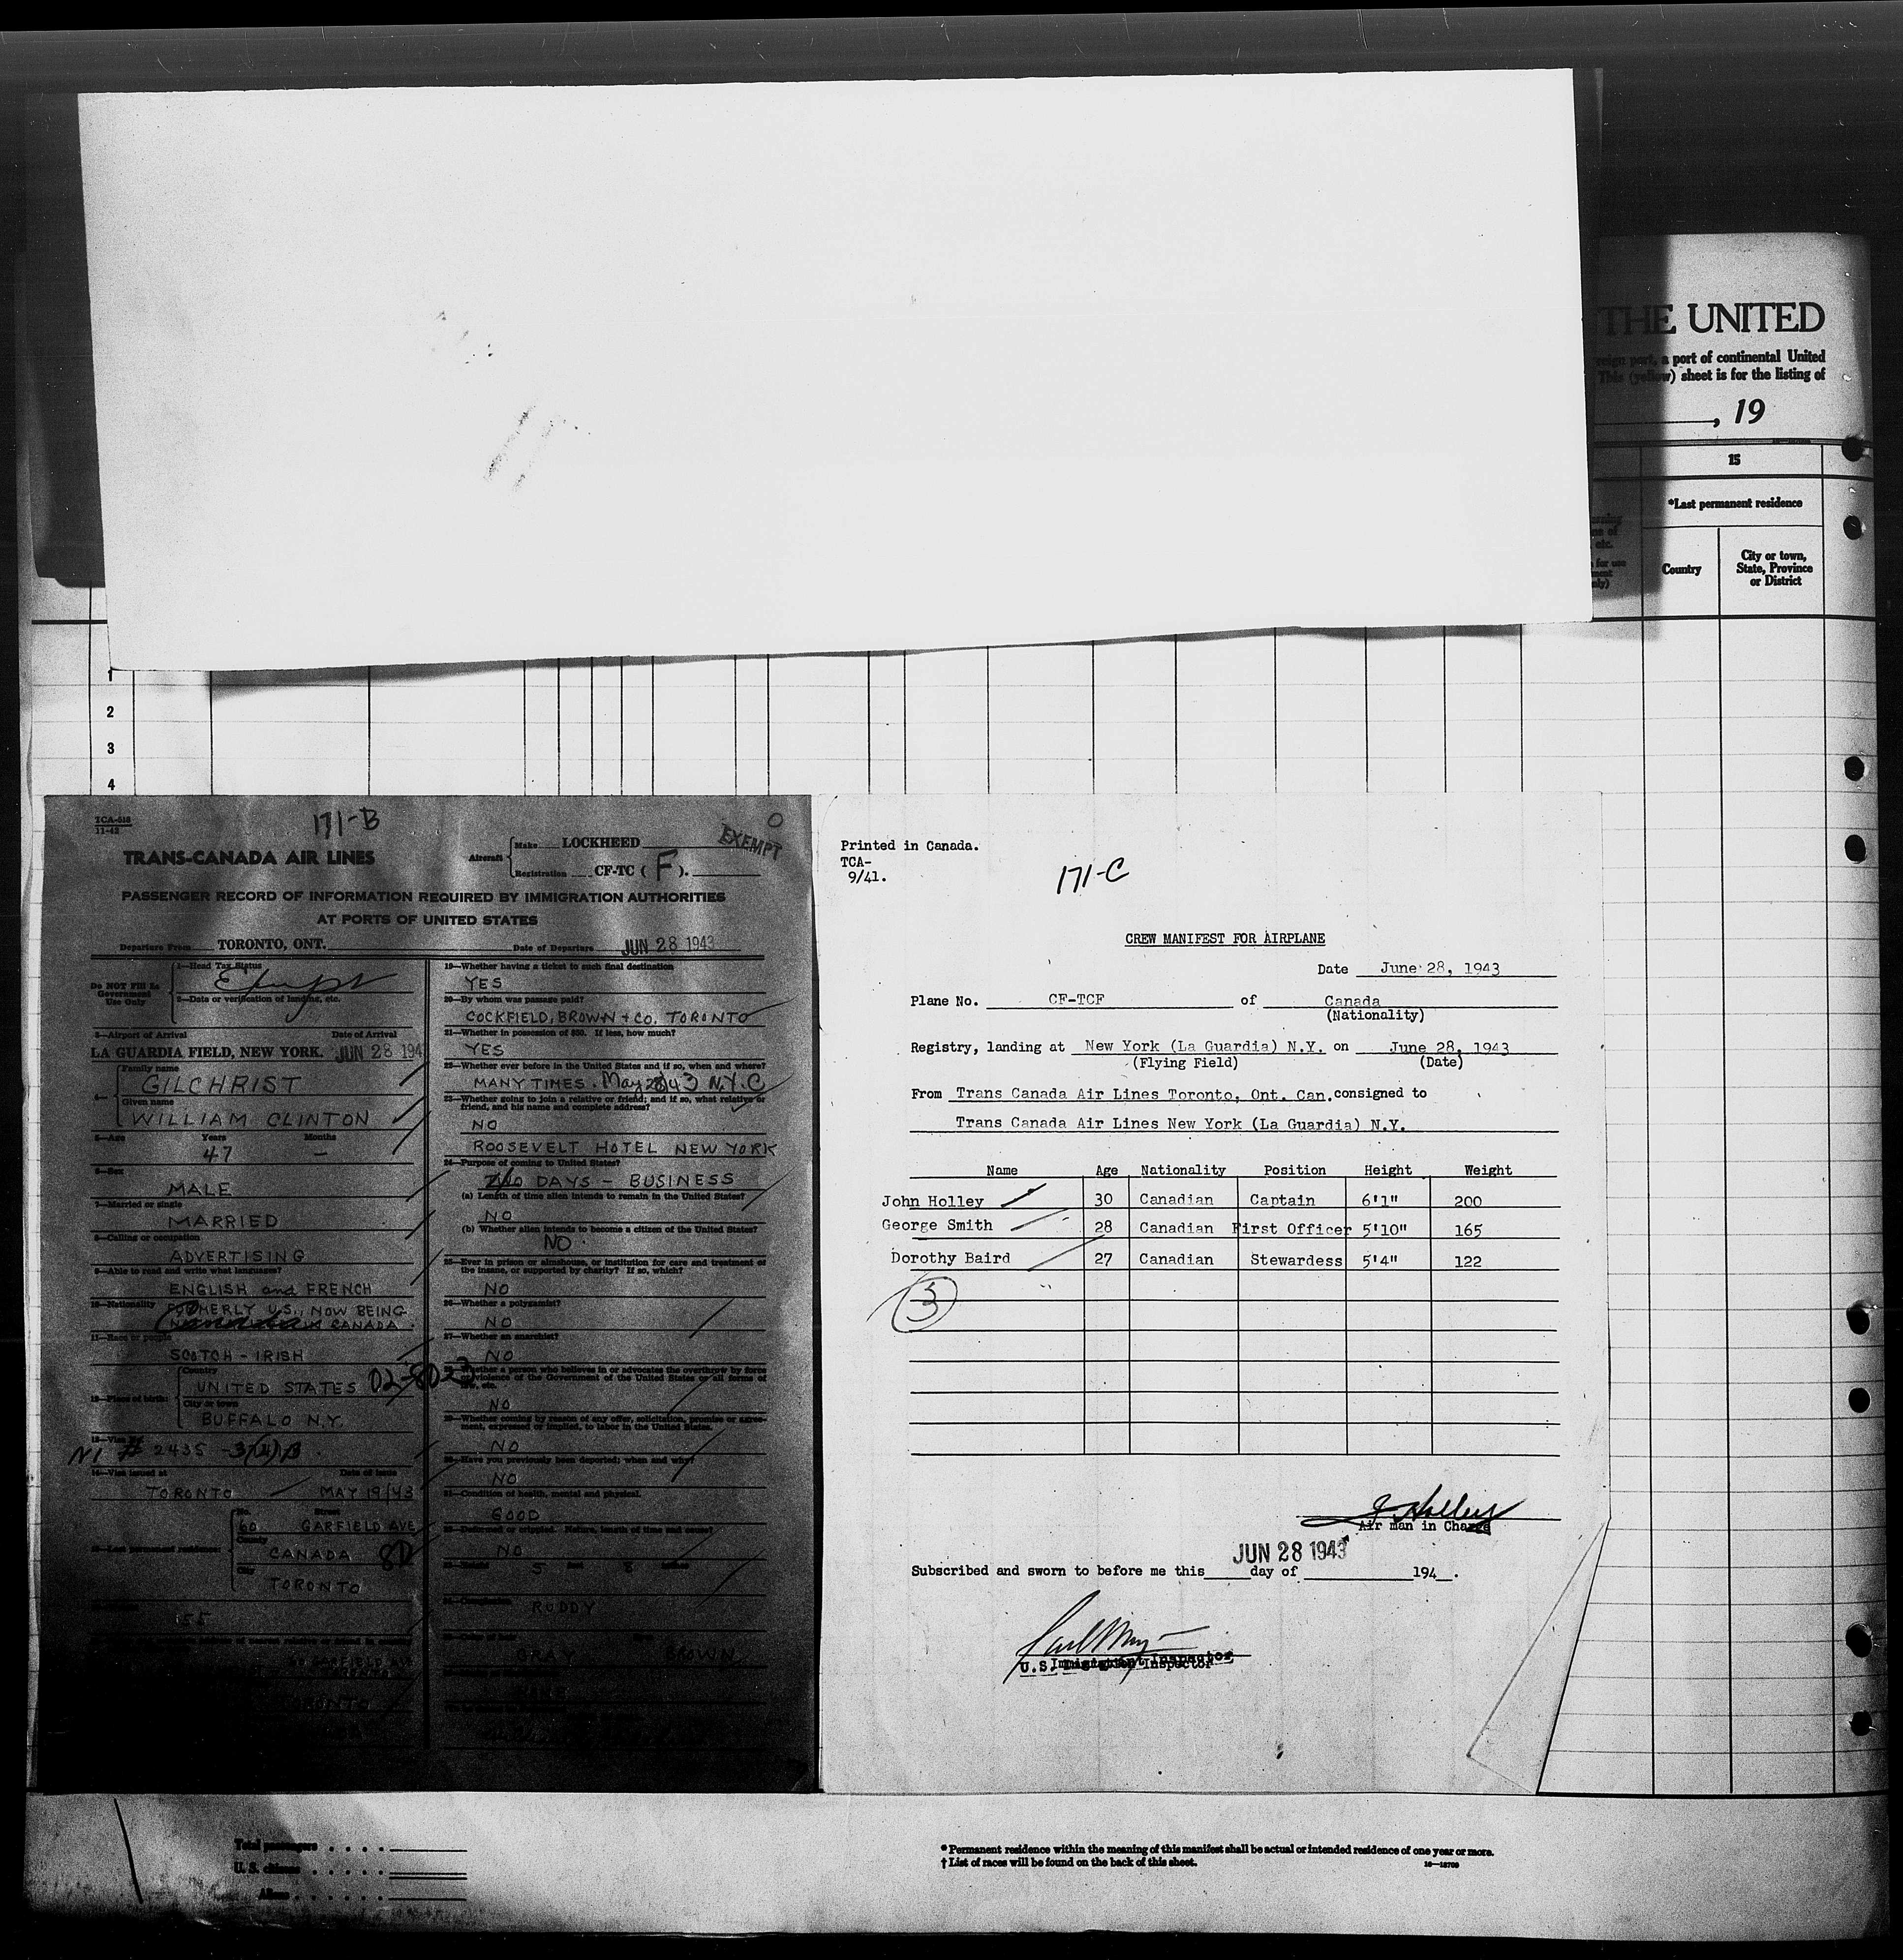 THE UNITED
a port of continental United
This (yellow) sheet is for the listing of
, 19
15
*Last permanent residence
Country
City or town,
State, Province
or District
1
2
3
4
TCA-518
11-42
171-B
EXEMPT
TRANS-CANADA AIR LINES
Aircraft
Make LOCKHEED
Registration CF-TC ( F ).
PASSENGER RECORD OF INFORMATION REQUIRED BY IMMIGRATION AUTHORITIES
AT PORTS OF UNITED STATES
Departure From TORONTO, ONT. Date of Departure JUN 28 1943
Do NOT Fill In
Government
Use Only
1—Head Tax Status
Exempt
2—Data or verification of landing, etc.
3—Airport of Arrival Date of Arrival
LA GUARDIA FIELD, NEW YORK. JUN 28 194
4—
Family name
GILCHRIST
Given name
WILLIAM CLINTON
5—Age Years Months
47 —
6—Sex
MALE
7—Married or single
MARRIED
8—Calling or occupation
ADVERTISING
9—Able to read and write what languages?
ENGLISH and FRENCH
10—Nationality FORMERLY U.S., NOW BEING
CANADA
11—Race or people
SCOTCH - IRISH
12—Place of birth:
Country
UNITED STATES
City or town
BUFFALO N.Y.
13—Visa No.
NI # 2435 - 3(2)B
14—Visa issued at Date of issue
TORONTO MAY 19/43
15—Last permanent residence:
No. Street
60 GARFIELD AVE
County
CANADA
City
TORONTO
155
TORONTO
19—Whether having a ticket to such final destination
YES
20—By whom was passage paid?
COCKFIELD, BROWN & CO. TORONTO
21—Whether in possession of $50. If less, how much?
YES
22—Whether ever before in the United States and if so, when and where?
MANY TIMES. May 43 N.Y.C
23—Whether going to join a relative or friend; and if so, what relative or
friend, and his name and complete address?
NO
ROOSEVELT HOTEL NEW YORK
24—Purpose of coming to United States?
DAYS - BUSINESS
(a) Length of time alien intends to remain in the United States?
NO
(b) Whether alien intends to become a citizen of the United States?
NO
25—Ever in prison or almshouse, or institution for care and treatment of
the insane, or supported by charity? If so, which?
NO
26—Whether a polygamist?
NO
27—Whether an anarchist?
NO
02-8023
28—Whether a person who believes in or advocates the overthrow by force
or violence of the Government of the United States or all forms of
law, etc.
NO
29—Whether coming by reason of any offer, solicitation, promise or agree-
ment, expressed or implied, to labor in the United States.
NO
30—Have you previously been deported; when and why?
NO
31—Condition of health, mental and physical.
GOOD
32—Deformed or crippled. Nature, length of time and cause?
NO
33—Height 5 feet 8 inches
34—Complexion
RUDDY
GRAY BROWN
Printed in Canada.
TCA-
9/41.
171-C
CREW MANIFEST FOR AIRPLANE
Date June 28, 1943
Plane No. CF-TCF of Canada
(Nationality)
Registry, landing at New York (La Guardia) N.Y. on June 28, 1943
(Flying Field) (Date)
From Trans Canada Air Lines Toronto, Ont. Can. consigned to
Trans Canada Air Lines New York (La Guardia) N.Y.
Name Age Nationality Position Height Weight
John Holley 30 Canadian Captain 6'1" 200
George Smith 28 Canadian First Officer 5'10" 165
Dorothy Baird 27 Canadian Stewardess 5'4" 122
3
J Holley
Air man in Charge
JUN 28 1943
Subscribed and sworn to before me this day of 194 .
U.S. Immigrant Inspector
Total passengers . . . .
U. S. citizens . . . . .
Aliens . . . . . .
* Permanent residence within the meaning of this manifest shall be actual or intended residence of one year or more.
† List of races will be found on the back of this sheet.